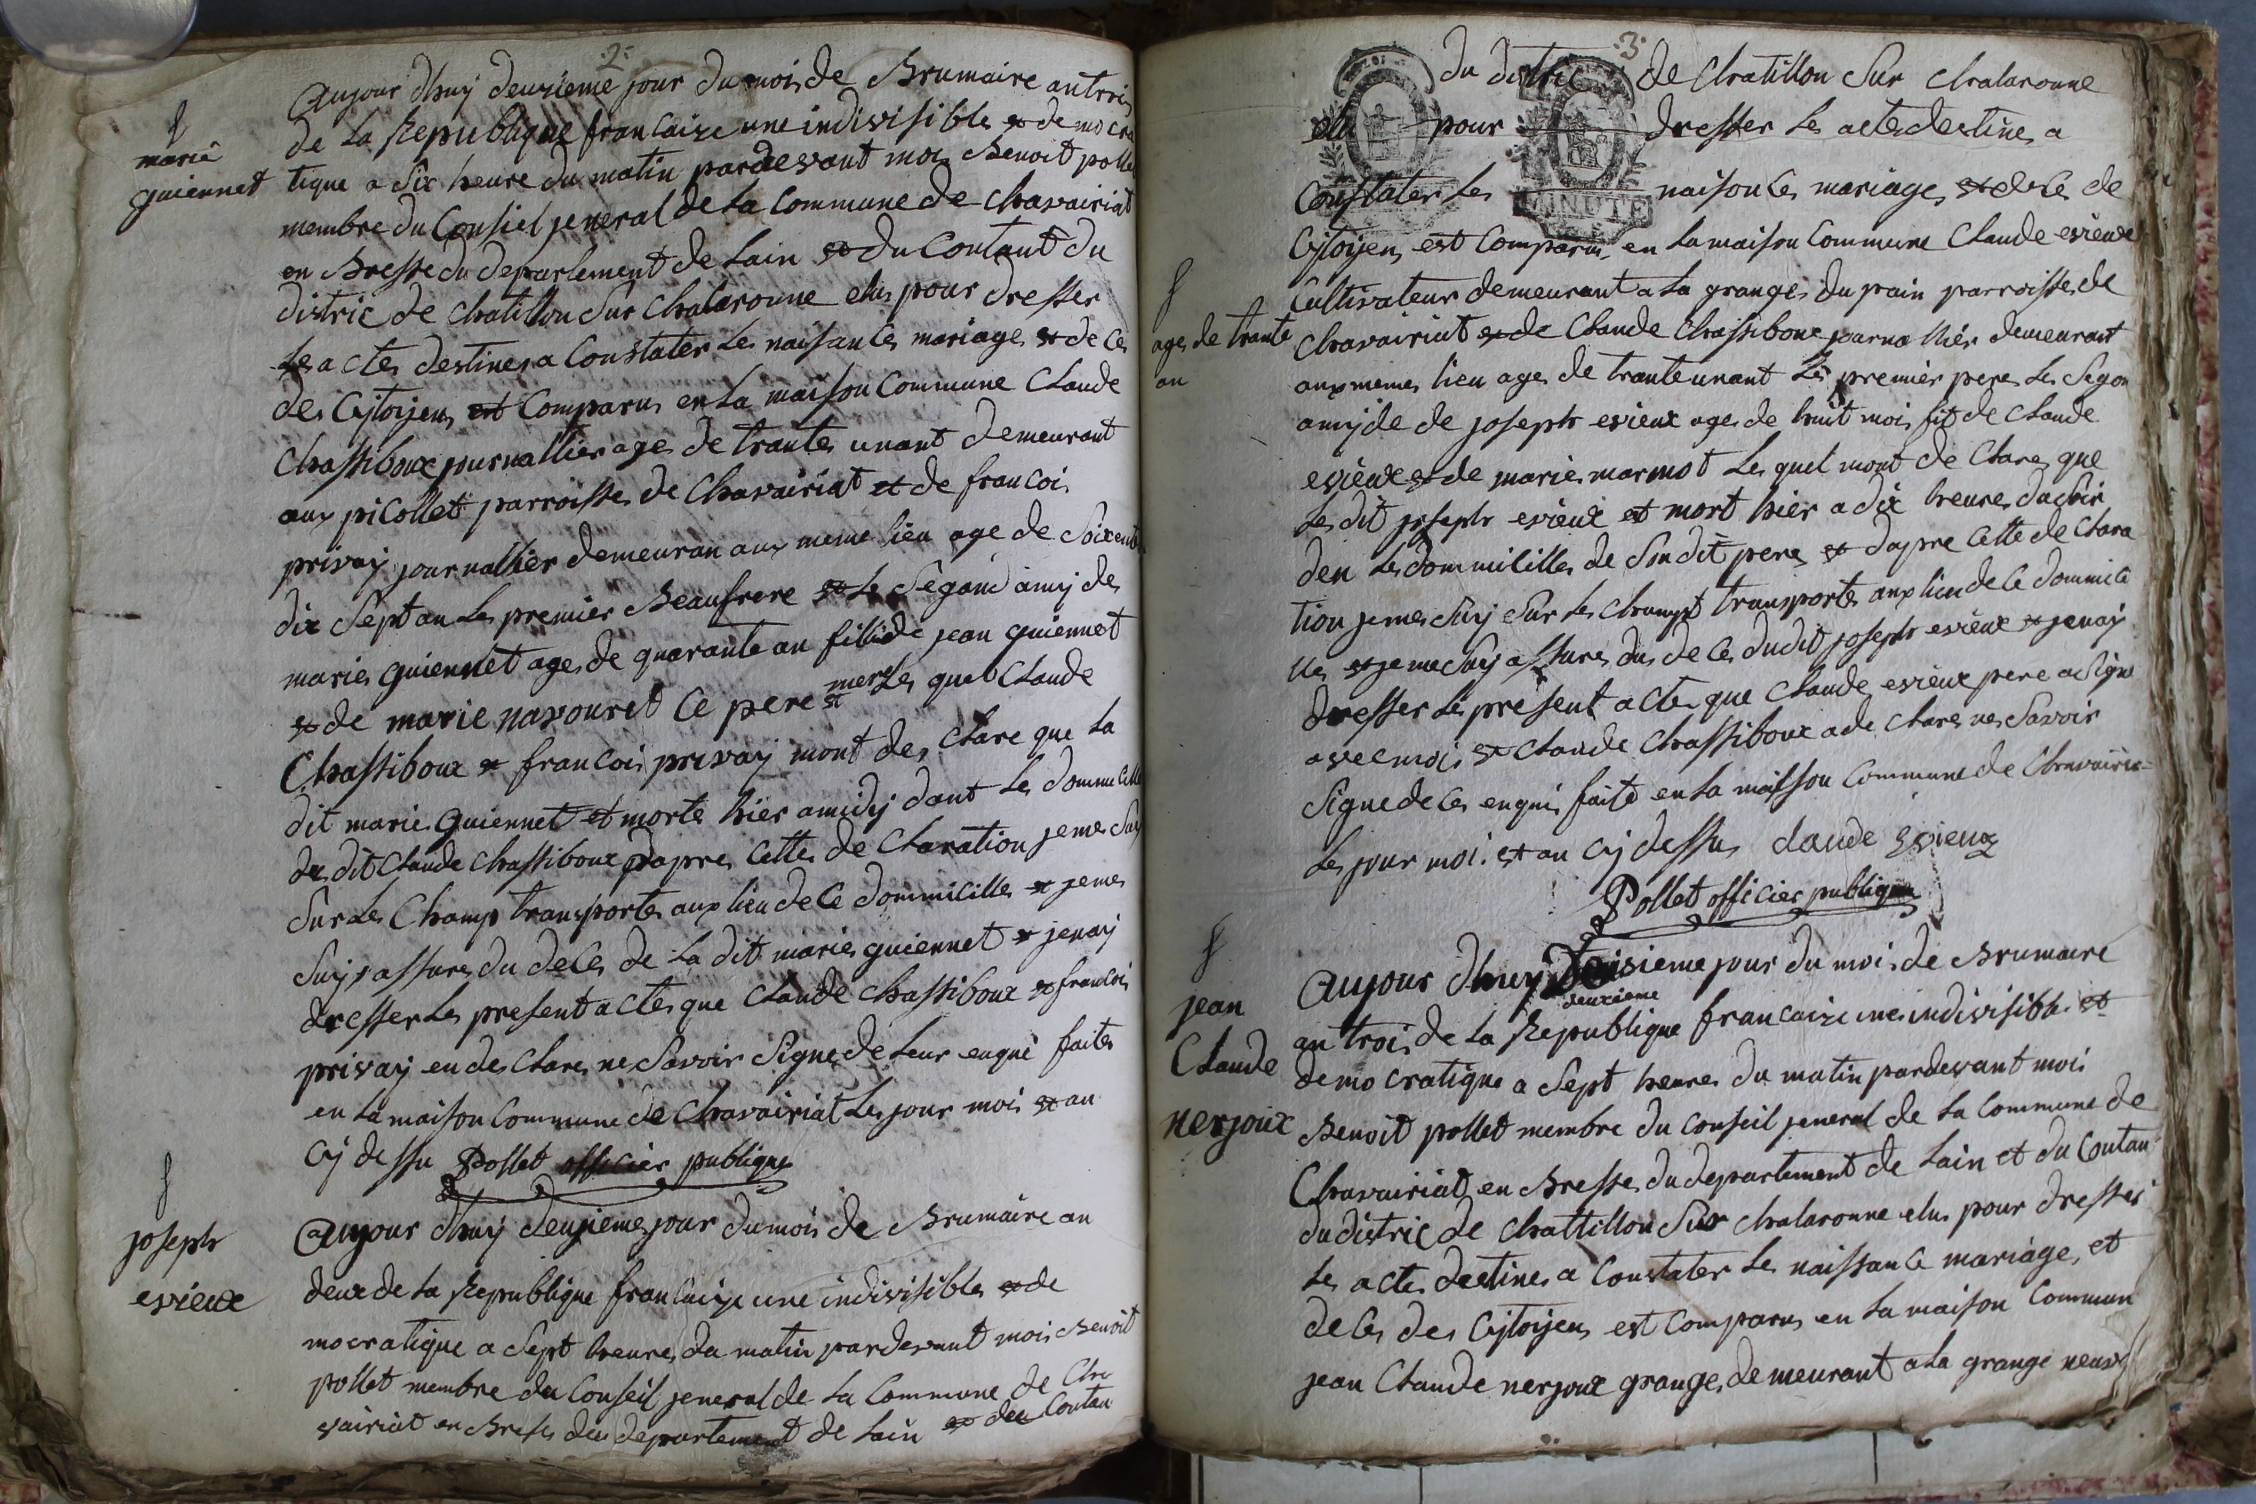 2
Aujour dhuy deuzieme jour du mois de Brumaire an troi
de La Republique francaize une indivisible et democra
tique a Six heure du matin pardevant moi Benoit pollet
marie
guiennet
membre du Consiel jeneral de La Commune de Chavairiat
en Bresse du departement de Lain et du Contant du
distric de chatillon Sur chalaronne elus pour dresser
Les actes destines a Constater Les naisances mariages et de ces
des Cytoyens est Comparus en La maison Commune Claude
Chassiboux journallier ages de trantes unant demeurant
aux picollet parroisse de Chavairiat et de francois
privay journallier demeuran aux meme lieu age de Soixent
dix Sept an Les premier Beaufrere et Le Segond amy de
marie guiennet ages de quarante an fillide jean guiennet
et de marie navouret Ce pere et mere Les quel Claude
Chassiboux et francois privay mont des Clare que La
dit marie guiennet et morte hier amidy dant Le dommicille
du dit Claude Chassiboux dapres Cettes de Claration jeme Suy
Sur Les Champ transportes aux lieu de Ce dommicilles et jemes
Suys assures du deces de La dit maries guiennet et jenay
dresser Les present actes que Claude Chassiboux et francois
privay en des Clares ne Savoir Signe de Leur enquis faites
en La maison Commune de Chavairiat Les jour mois et an
Cy dessu Pollet officier publique
joseph
evieux
Aujour dhuy deuzieme jour du mois de Brumaire an
deux de La Republique francaize une indivisibles et de
mocratique a Sept heures du matin pardevant mois Benoit
pollet membre du Conseil jeneral de La Commune de Cha
vairiat en Bresse du departement de Lain et du Contan
3
du distric de Chatillon Sur Chalaronne
elu pour dresser Les actes destines a
Constater Les naisonces mariages et deces de
Cytoyens est Comparus en La maison Commune Claude evieux
Cultivateur demeurant a La granges du pain parroisse de
ages de trante
an
Chavairiat et de Claude Chassiboux journallier demeurant
aux memes lieu ages de trante unant Les premier pere Les Segon
amy de de joseph evieux ages de huit mois fit de Claude
evieux et de marie marmot Les quel mont de Clares que
Les dit joseph evieux et mort hier a dix heures du Soir
den Les dommicilles de Son dit pere et dapre Cette de Clara
tion jemes Suy Sur Les Champt transportes aux lieu de Ce dommici
lles et jeme Suy assures du de Ces dudit joseph evieux et jenay
dresser Les present actes que Claude evieux pere a Signe
avec moi et Claude Chassiboux a de Clares nes Savoir
Signe de Ces enquis faite en La maisson Commune de Chavairia=
Les jour moi et an Cy dessus Claude Evieux
Pollet officier publique
MINUTE
jean
Claude
nerjoux
Aujour dhuy Troisieme jour du mois de Brumaire
deuxieme
an trois de La Republique francaize une indivisibles et
democratique a Sept heures du matin pardevant mois
Benoit pollet membre du conseil jeneral de La Commune de
Chavairiat en Bresse du departement de Lain et du Contan
du distric de Chattillon Sur Chalaronne elus pour dresser
Les actes destines a Constater Les naissance mariage et
de Ces des Cytoyens est Comparus en La maison Commun
jean Claude nerjoux granges demeurant a La grange neuve